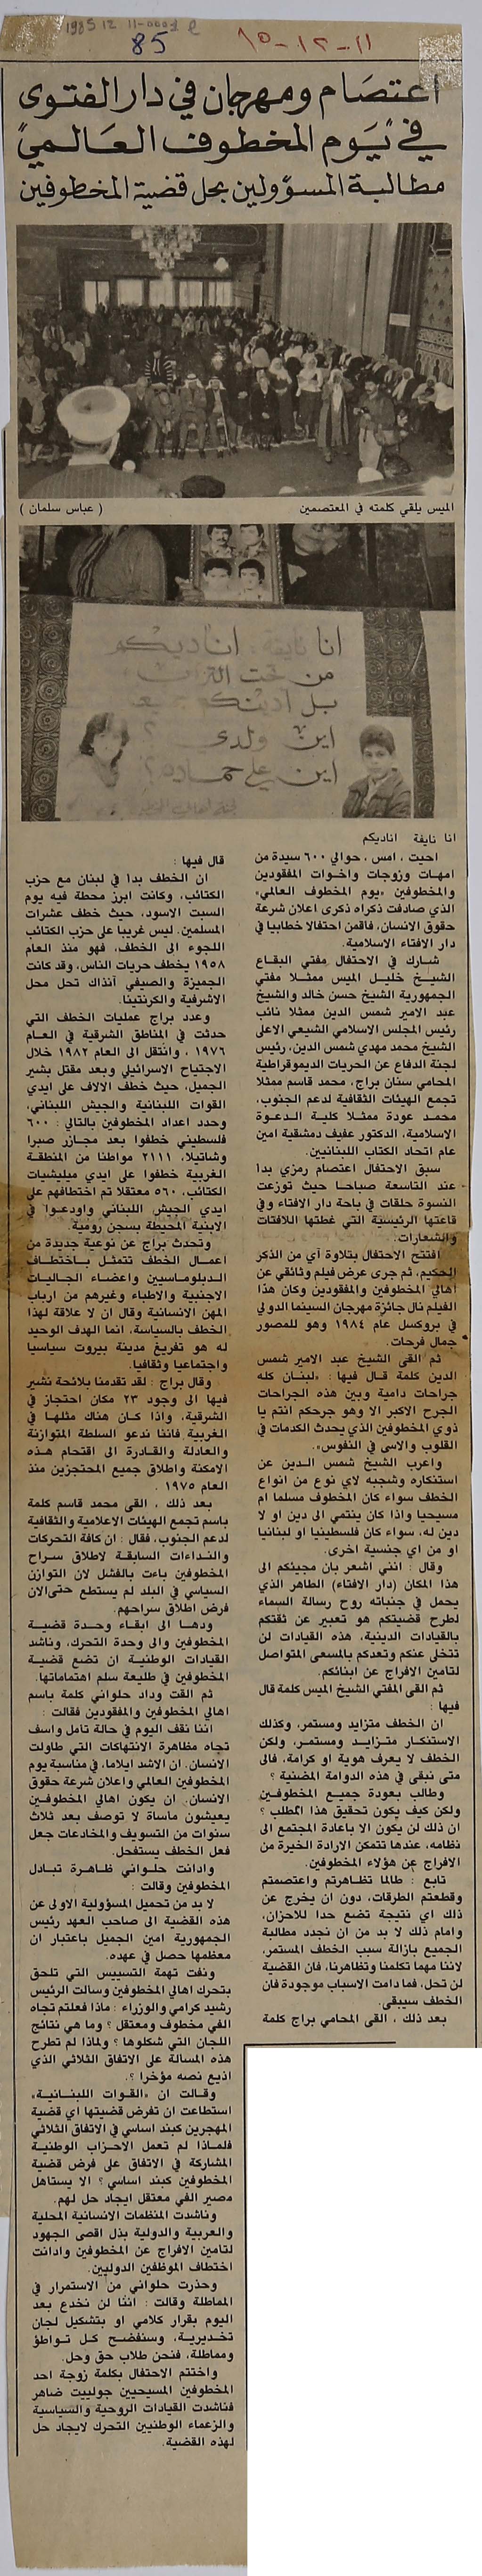 1985 12 11-0001 e
85
١١-١٢-٨٥
اعتصام ومهرجان في دار الفتوى
في "يوم المخطوف العالمي"
مطالبة المسؤولين بحل قضية المخطوفين
الميس يلقي كلمته في المعتصمين
( عباس سلمان )
انا نايفة : اناديكم
من تحت التراب
بل اديـنكم جميعا
اين ولدي ؟
اين علي حماده ؟
انا نايفة اناديكم
احيت ، امس ، حوالي ٦٠٠ سيدة من
امهات وزوجات واخوات المفقودين
والمخطوفين «يوم المخطوف العالمي»
الذي صادفت ذكراه ذكرى اعلان شرعة
حقوق الانسان، فاقمن احتفالا خطابيا في
دار الافتاء الاسلامية.
شارك في الاحتفال مفتي البقاع
الشيخ خليل الميس ممثلا مفتي
الجمهورية الشيخ حسن خالد والشيخ
عبد الامير شمس الدين ممثلا نائب
رئيس المجلس الاسلامي الشيعي الاعلى
الشيخ محمد مهدي شمس الدين، رئيس
لجنة الدفاع عن الحريات الديموقراطية
المحامي سنان براج، محمد قاسم ممثلا
تجمع الهيئات الثقافية لدعم الجنوب،
محمد عودة ممثلا كلية الدعوة
الاسلامية، الدكتور عفيف دمشقية امين
عام اتحاد الكتاب اللبنانيين.
سبق الاحتفال اعتصام رمزي بدا
عند التاسعة صباحا حيث توزعت
النسوة حلقات في باحة دار الافتاء وفي
قاعتها الرئيسية التي غطتها اللافتات
والشعارات.
افتتح الاحتفال بتلاوة آي من الذكر
الحكيم، ثم جرى عرض فيلم وثائقي عن
اهالي المخطوفين والمفقودين وكان هذا
الفيلم نال جائزة مهرجان السينما الدولي
في بروكسل عام ١٩٨٤ وهو للمصور
جمال فرحات.
ثم القى الشيخ عبد الامير شمس
الدين كلمة قال فيها : «لبنان كله
جراحات دامية وبين هذه الجراحات
الجرح الاكبر الا وهو جرحكم انتم يا
ذوي المخطوفين الذي يحدث الكدمات في
القلوب والاسى في النفوس».
واعرب الشيخ شمس الدين عن
استنكاره وشجبه لاي نوع من انواع
الخطف سواء كان المخطوف مسلما ام
مسيحيا واذا كان ينتمي الى دين او لا
دين له، سواء كان فلسطينيا او لبنانيا
او من اي جنسية اخرى.
وقال : انني اشعر بان مجيئكم الى
هذا المكان (دار الافتاء) الطاهر الذي
يحمل في جنباته روح رسالة السماء
لطرح قضيتكم هو تعبير عن ثقتكم
بالقيادات الدينية، هذه القيادات لن
تتخلى عنكم وتعدكم بالمسعى المتواصل
لتامين الافراج عن ابنائكم.
ثم القى المفتي الشيخ الميس كلمة قال
فيها :
ان الخطف متزايد ومستمر، وكذلك
الاستنكار متزايد ومستمر، ولكن
الخطف لا يعرف هوية او كرامة، فالى
متى نبقى في هذه الدوامة المضنية ؟
وطالب بعودة جميع المخطوفين
ولكن كيف يكون تحقيق هذا المطلب ؟
ان ذلك لن يكون الا باعادة المجتمع الى
نظامه، عندها تتمكن الارادة الخيرة من
الافراج عن هؤلاء المخطوفين.
تابع : طالما تظاهرتم واعتصمتم
وقطعتم الطرقات، دون ان يخرج عن
ذلك اي نتيجة تضع حدا للاحزان،
وامام ذلك لا بد من ان نجدد مطالبة
الجميع بازالة سبب الخطف المستمر،
لاننا مهما تكلمنا وتظاهرنا، فان القضية
لن تحل، فما دامت الاسباب موجودة فان
الخطف سيبقى.
بعد ذلك ، القى المحامي براج كلمة
قال فيها :
ان الخطف بدا في لبنان مع حزب
الكتائب، وكانت ابرز محطة فيه يوم
السبت الاسود، حيث خطف عشرات
المسلمين. ليس غريبا على حزب الكتائب
اللجوء الى الخطف، فهو منذ العام
١٩٥٨ يخطف حريات الناس، وقد كانت
الجميزة والصيفي آنذاك تحل محل
الاشرفية والكرنتينا.
وعدد براج عمليات الخطف التي
حدثت في المناطق الشرقية في العام
١٩٧٦ ، وانتقل الى العام ١٩٨٢ خلال
الاجتياح الاسرائيلي وبعد مقتل بشير
الجميل، حيث خطف الالاف على ايدي
القوات اللبنانية والجيش اللبناني،
وحدد اعداد المخطوفين بالتالي : ٦٠٠
فلسطيني خطفوا بعد مجازر صبرا
وشاتيلا، ٢١١١ مواطنا من المنطقة
الغربية خطفوا على ايدي ميليشيات
الكتائب، ٥٦٠ معتقلا تم اختطافهم على
ايدي الجيش اللبناني واودعوا في
الابنية المحيطة بسجن رومية.
وتحدث براج عن نوعية جديدة من
اعمال الخطف تتمثل باختطاف
الدبلوماسيين واعضاء الجاليات
الاجنبية والاطباء وغيرهم من ارباب
المهن الانسانية وقال ان لا علاقة لهذا
الخطف بالسياسة، انما الهدف الوحيد
له هو تفريغ مدينة بيروت سياسيا
واجتماعيا وثقافيا.
وقال براج : لقد تقدمنا بلائحة نشير
فيها الى وجود ٢٣ مكان احتجاز في
الشرقية، واذا كان هناك مثلها في
الغربية فاننا ندعو السلطة المتوازنة
والعادلة والقادرة الى اقتحام هذه
الامكنة واطلاق جميع المحتجزين منذ
العام ١٩٧٥ .
بعد ذلك ، القى محمد قاسم كلمة
باسم تجمع الهيئات الاعلامية والثقافية
لدعم الجنوب، فقال : ان كافة التحركات
والنداءات السابقة لاطلاق سراح
المخطوفين باءت بالفشل لان التوازن
السياسي في البلد لم يستطع حتى الان
فرض اطلاق سراحهم.
ودعا الى ابقاء وحدة قضية
المخطوفين والى وحدة التحرك، وناشد
القيادات الوطنية ان تضع قضية
المخطوفين في طليعة سلم اهتماماتها.
ثم القت وداد حلواني كلمة باسم
اهالي المخطوفين والمفقودين فقالت :
اننا نقف اليوم في حالة تامل واسف
تجاه مظاهرة الانتهاكات التي طاولت
الانسان. ان الاشد ايلاما، في مناسبة يوم
المخطوفين العالمي واعلان شرعة حقوق
الانسان. ان يكون اهالي المخطوفين
يعيشون ماساة لا توصف بعد ثلاث
سنوات من التسويف والمخادعات جعل
فعل الخطف يستفحل.
وادانت حلواني ظاهرة تبادل
المخطوفين وقالت :
لا بد من تحميل المسؤولية الاولى عن
هذه القضية الى صاحب العهد رئيس
الجمهورية امين الجميل باعتبار ان
معظمها حصل في عهده.
ونفت تهمة التسييس التي تلحق
بتحرك اهالي المخطوفين وسالت الرئيس
رشيد كرامي والوزراء : ماذا فعلتم تجاه
الفي مخطوف ومعتقل ؟ وما هي نتائج
اللجان التي شكلوها ؟ ولماذا لم تطرح
هذه المسالة على الاتفاق الثلاثي الذي
اذيع نصه مؤخرا ؟.
وقالت ان «القوات اللبنانية»
استطاعت ان تفرض قضيتها اي قضية
المهجرين كبند اساسي في الاتفاق الثلاثي
فلماذا لم تعمل الاحزاب الوطنية
المشاركة في الاتفاق على فرض قضية
المخطوفين كبند اساسي ؟ الا يستاهل
مصير الفي معتقل ايجاد حل لهم.
وناشدت المنظمات الانسانية المحلية
والعربية والدولية بذل اقصى الجهود
لتامين الافراج عن المخطوفين وادانت
اختطاف الموظفين الدوليين.
وحذرت حلواني من الاستمرار في
المماطلة وقالت : اننا لن نخدع بعد
اليوم بقرار كلامي او بتشكيل لجان
تخديرية، وسنفضح كل تواطؤ
ومماطلة، فنحن طلاب حق وحل.
واختتم الاحتفال بكلمة زوجة احد
المخطوفين المسيحيين جولييت ضاهر
فناشدت القيادات الروحية والسياسية
والزعماء الوطنيين التحرك لايجاد حل
لهذه القضية.